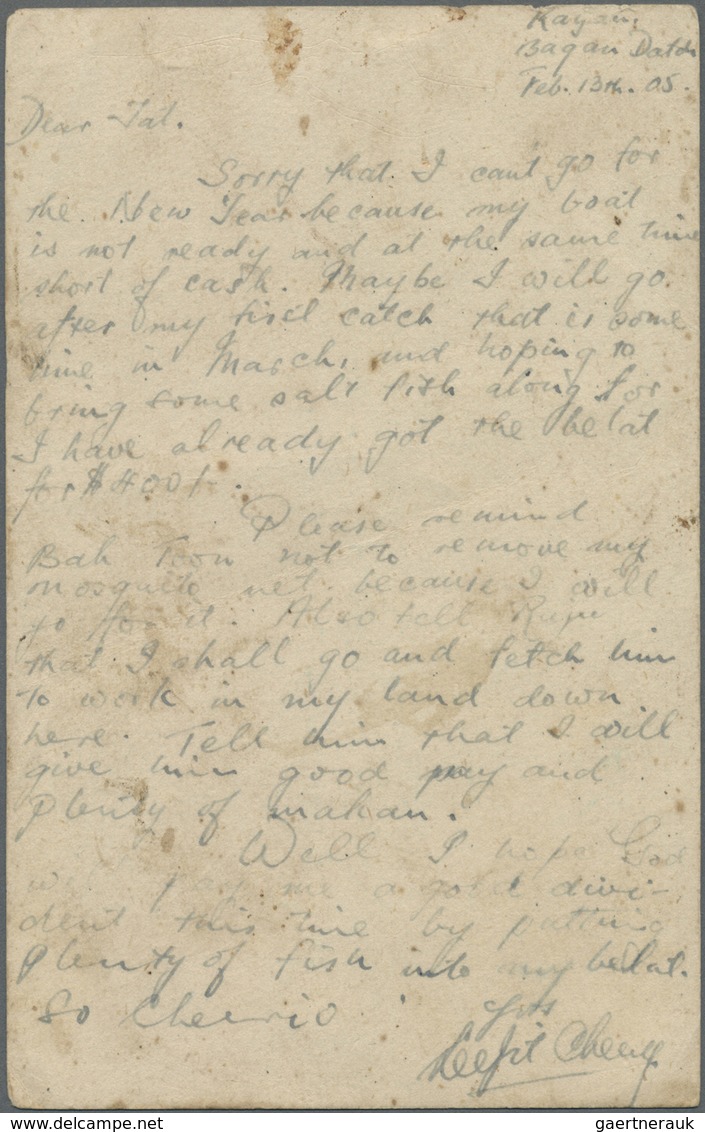 Kayan,
Bagan Datoh
Feb. 13th. 05.
Dear Tat.
Sorry that I can't go for
the New Year because my boat
is not ready and at the same time
short of cash. Maybe I will go
after my first catch that is some
time in March, and hoping to
bring some salt fish along for
I have already got the belat
for $400/.
Please remind
Bah Toon not to remove my
mosquito net because I will
go for it. Also tell
that I shall go and fetch him
to work in my land down
here. Tell him that I will
give him good pay and
plenty of makan.
Well I hope God
pay me a good divi-
dent this time by putting
plenty of fish into my belat.
So Cheerio
Yrs
Cheng
gaertnerauk